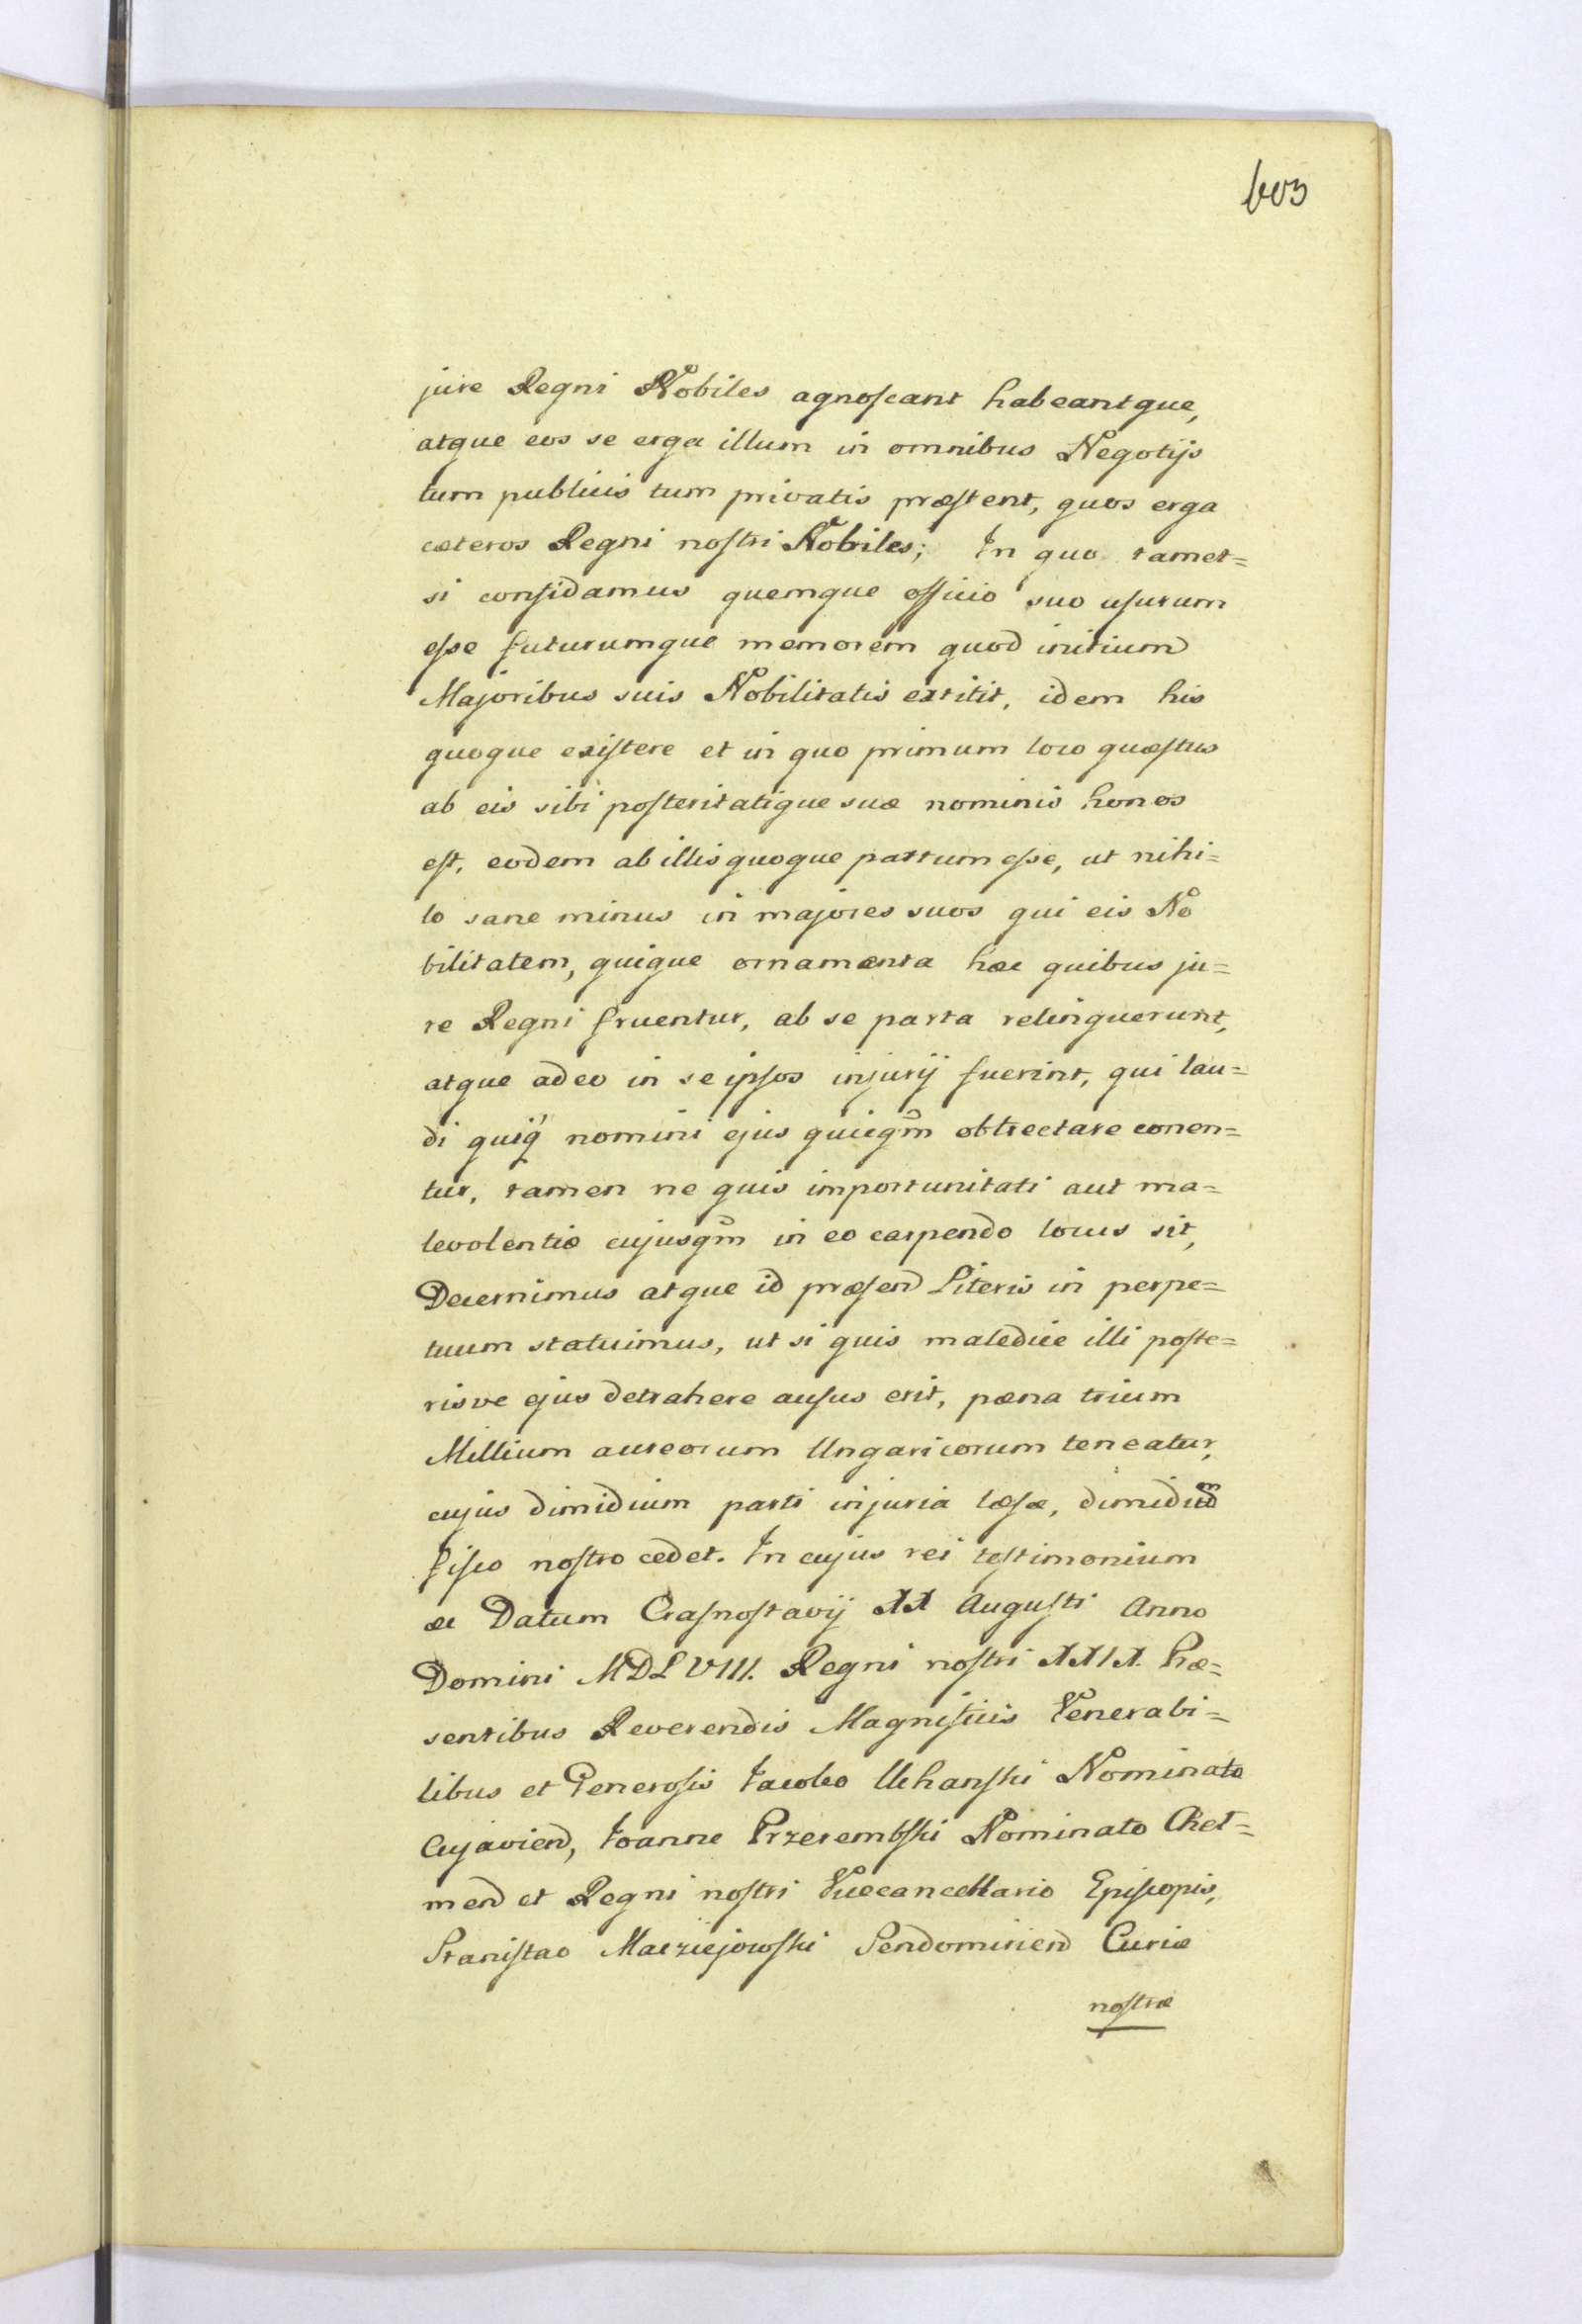 603
jure Regni Nobiles agnoscant habeantque,
atque eos se erga illum in omnibus Negotijs
tum publicis tum privatis præstent, quos erga
cæteros Regni nostri Nobiles; In quo tamet=
si confidamus quemque officio suo usurum
esse futurumque memorem quod initium
Majoribus suis Nobilitatis extitit, idem his
quoque existere et in quo primum loco quæstus
ab eis sibi posteritatique suæ nominis honos
est, eodem ab illis quoque partum esse, ut nihi=
lo sane minus in majores suos qui eis No
bilitatem, quique ornamenta hæc quibus ju=
re Regni fruentur, ab se parta relinquerunt,
atque adeo in se ipsos injurij fuerint, qui lau=
di quiq́ nomini ejus quicqm̃ obtrectare conen=
tur, tamen ne quis importunitati aut ma=
levolentiæ cujusqm̃ in eo carpendo locus sit,
Decernimus atque id præsend Literis in perpe=
tuum statuimus, ut si quis maledice illi poste=
risve ejus detrahere ausus erit, pæna trium
Millium aureorum Ungaricorum teneatur,
cujus dimidium parti injuria læsæ, dimidium
fisco nostro cedet. In cujus rei testimonium
æc Datum Crasnostavij XX Augusti Anno
Domini MDLVIII. Regni nostri XXIX. Præ=
sentibus Reverendis Magnificis Venerabi=
libus et Generosis Jacobo Uchanski Nominato
Cujaviend, Joanne Przerembski Nominato Chel=
mend et Regni nostri Vicecancellario Episcopis,
Stanislao Maczziejowski Sendomiriend Curiæ
nostræ